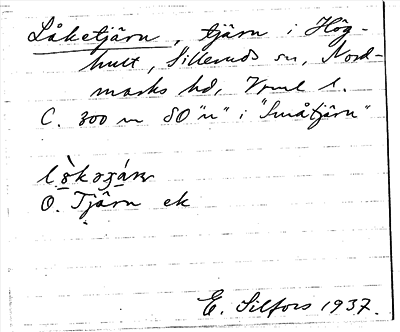 Låketjärn, tjärn i Hög-
hult, Silleruds sn, Nord-
marks hd, Vrml l.
C. 300 m SO "n" i "Småtjärn"
O. Tjärn ek
E. Silfors 1937.